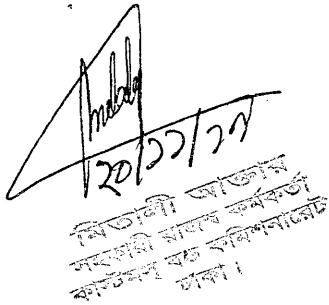 ২০/১১/১৭
মিতালী আক্তার
সহকারী রাজস্ব কর্মকর্তা
কাস্টমস্ বন্ড কমিশনারেট
ঢাকা।